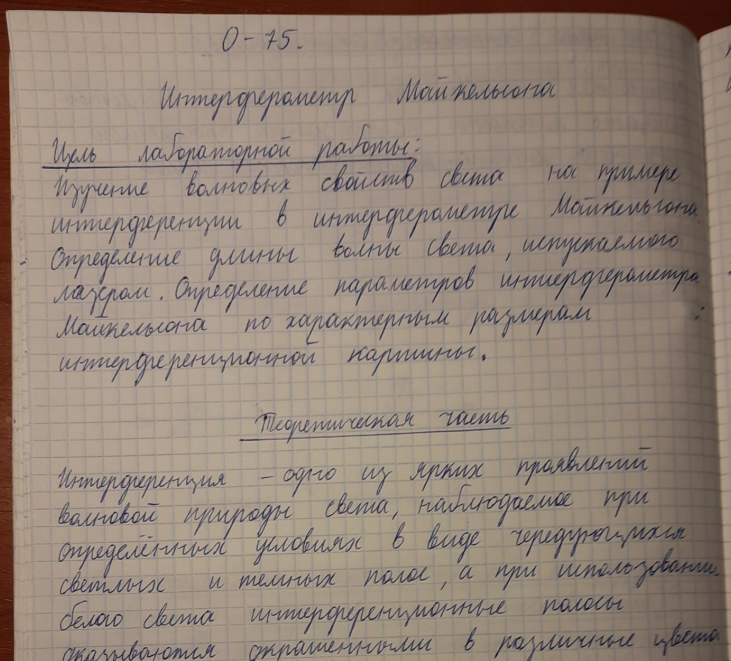 О-75.
Интерферометр Майкельсона
Цель лабораторной работы:
Изучение волновых свойств света на примере
интерференции в интерферометре Майкельсона
Определение длины волны света, испускаемого
лазером. Определение параметров интерферометра
Майкельсона по характерным размерам
интерференционной картины.
Теоретическая часть
Интерференция - одно из ярких проявлений
волновой природы света, наблюдаемое при
определённых условиях в виде чередующихся
светлых и темных полос, а при использовании
белого света интерференционные полосы
оказываются окрашенными в различные цвета